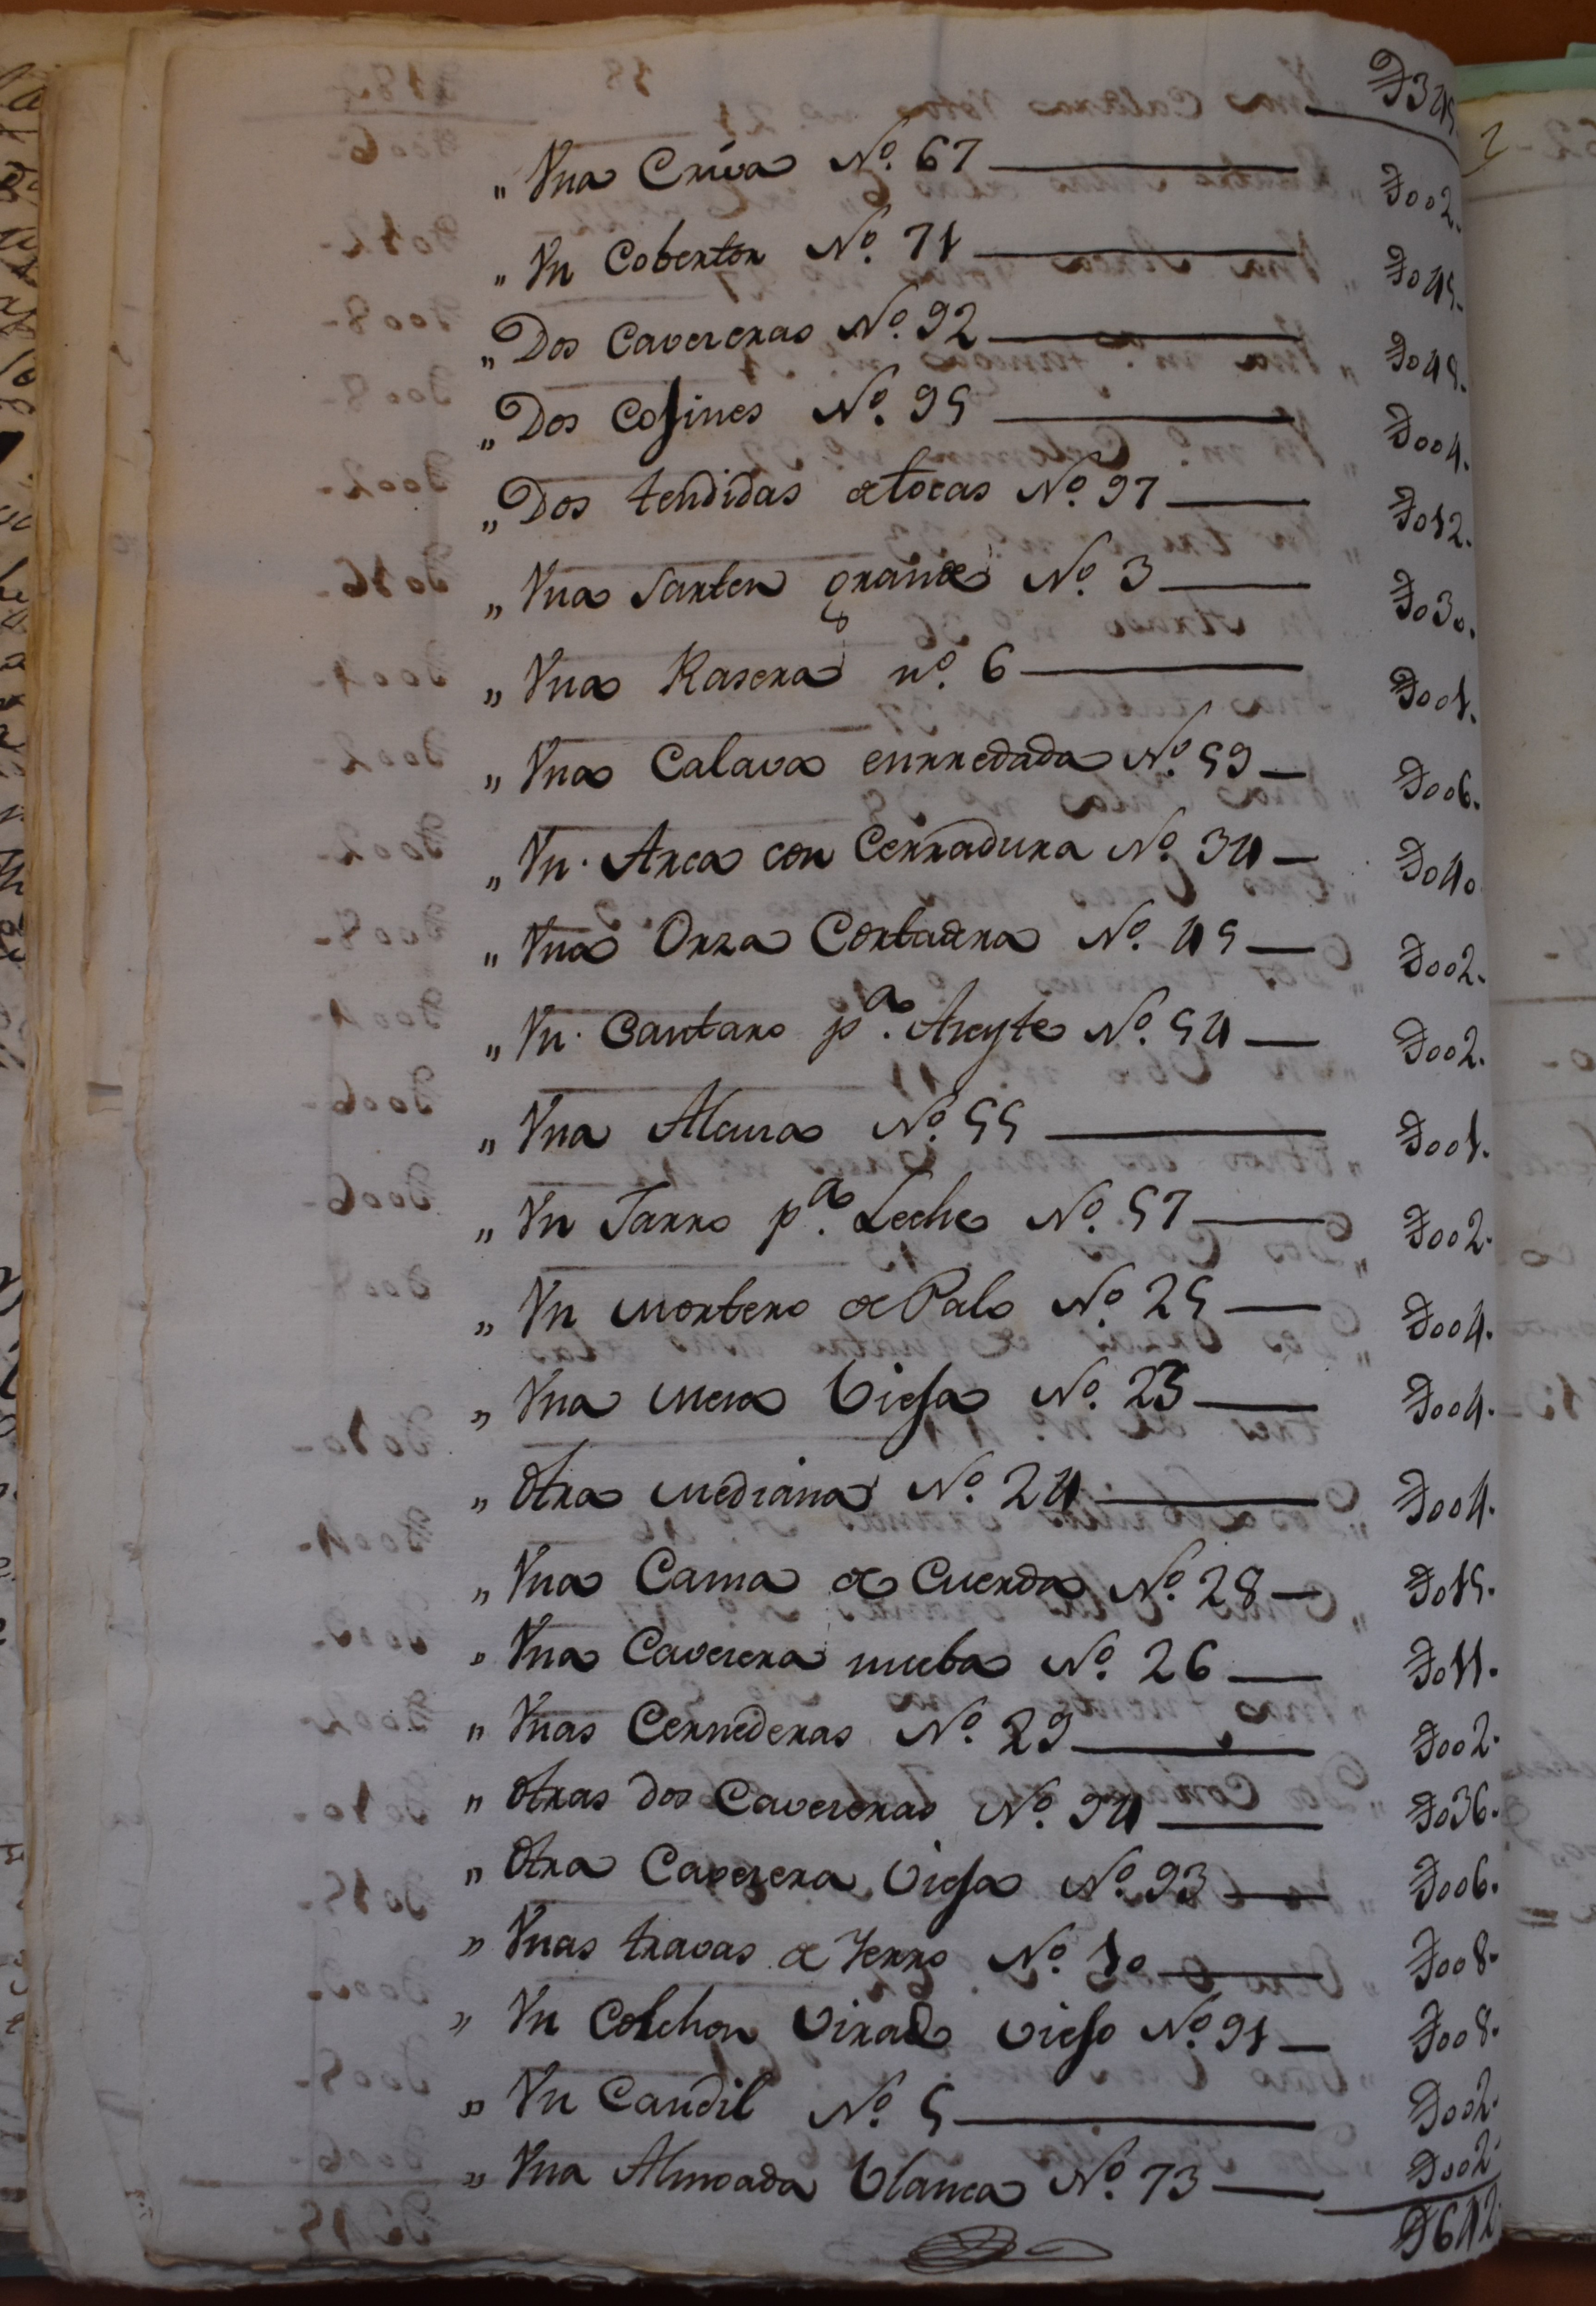 D345.
„ Vna Criva Nº. 67 D002.
„ Vn Cobertor Nº. 71 D045.
„ Dos Cavezeras Nº. 92 D048.
„ Dos Cojines Nº. 95 D004.
„ Dos tendidas de tocas Nº. 97 D012.
„ Vna Sarten grande Nº. 3 D030.
„ Vna Rasera nº. 6 D001.
„ Vna Calava enrredada Nº. 59 D006.
„ Vn. Arca con Cerradura Nº. 34 D040
„ Vna Orza Cortadera Nº. 45 D002.
„ Vn. Cantaro pª. Azeyte Nº. 54 D002.
„ Vna Alcuza Nº. 55 D001.
„ Vn Jarro pª. Leche Nº. 57 D002.
„ Vn mortero de Palo Nº. 25 D004.
„ Vna mesa Vieja Nº. 23 D004.
„ Otra mediana Nº. 24 D004.
„ Vna Cama de Cuerda Nº. 28 D015.
„ Vna Cavezera nueba Nº. 26 D011.
„ Vnas Cernederas Nº. 29 D002.
„ Otras dos Cavezeras Nº. 94 D036.
„ Otra Cavezera Vieja Nº. 93 D006.
„ Vnas travas de Yerro Nº. 10 D008.
„ Vn Colchon Virado viejo Nº. 91 D008.
„ Vn Candil Nº. 5 D002.
„ Vna Almoada blanca Nº. 73 D002.
D642.